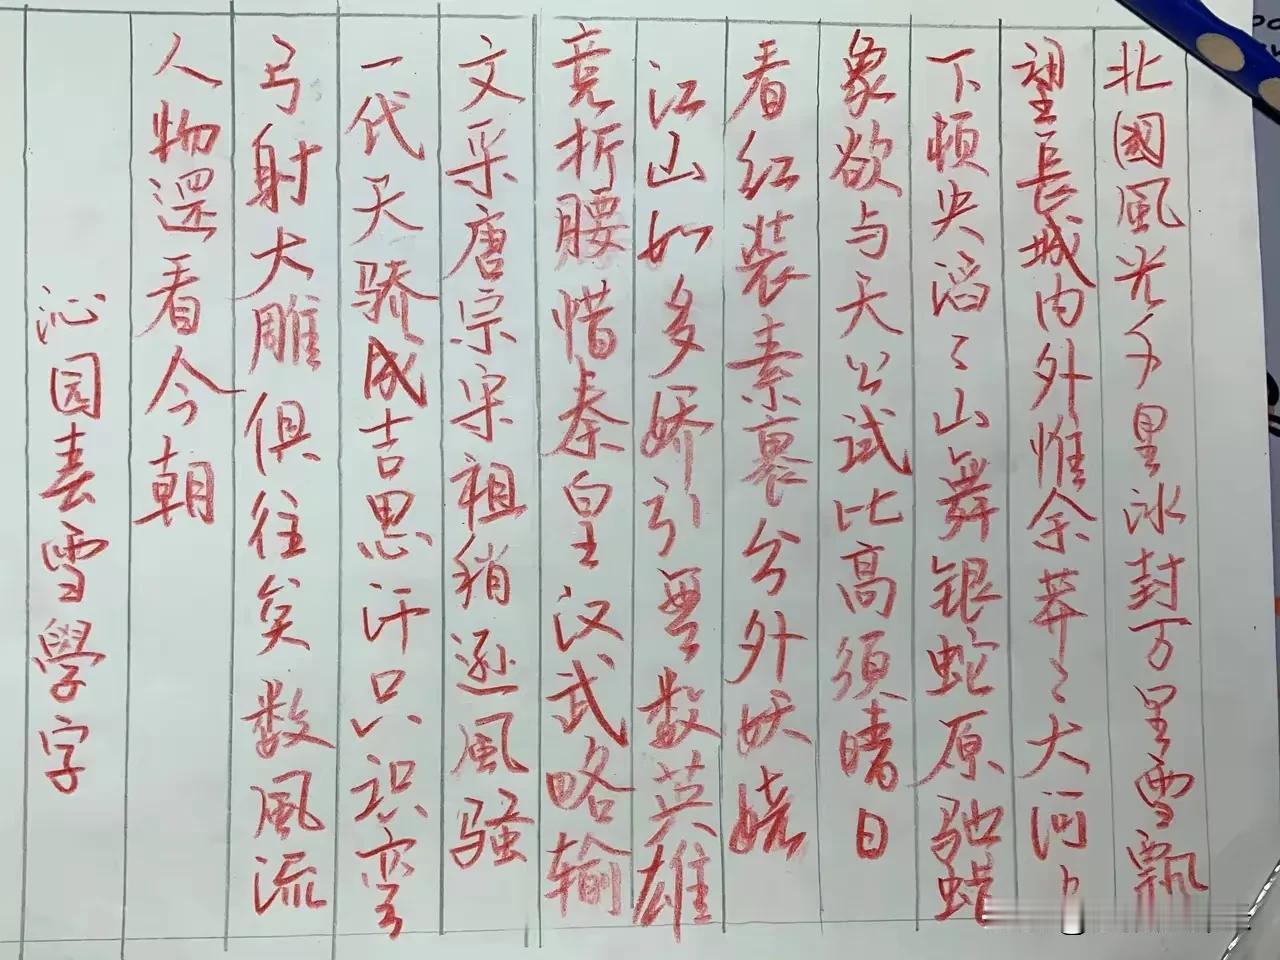 北國風光千里冰封万里雪飘
望長城内外惟余莽々大河上
下顿失滔々山舞银蛇原驰蜡
象欲与天公试比高须晴日
看红装素裹分外妖娆
江山如多娇引無数英雄
竞折腰惜秦皇汉武略输
文采唐宗宋祖稍逊風骚
一代天骄成吉思汗只识弯
弓射大雕俱往矣数風流
人物還看今朝
沁园春雪學字